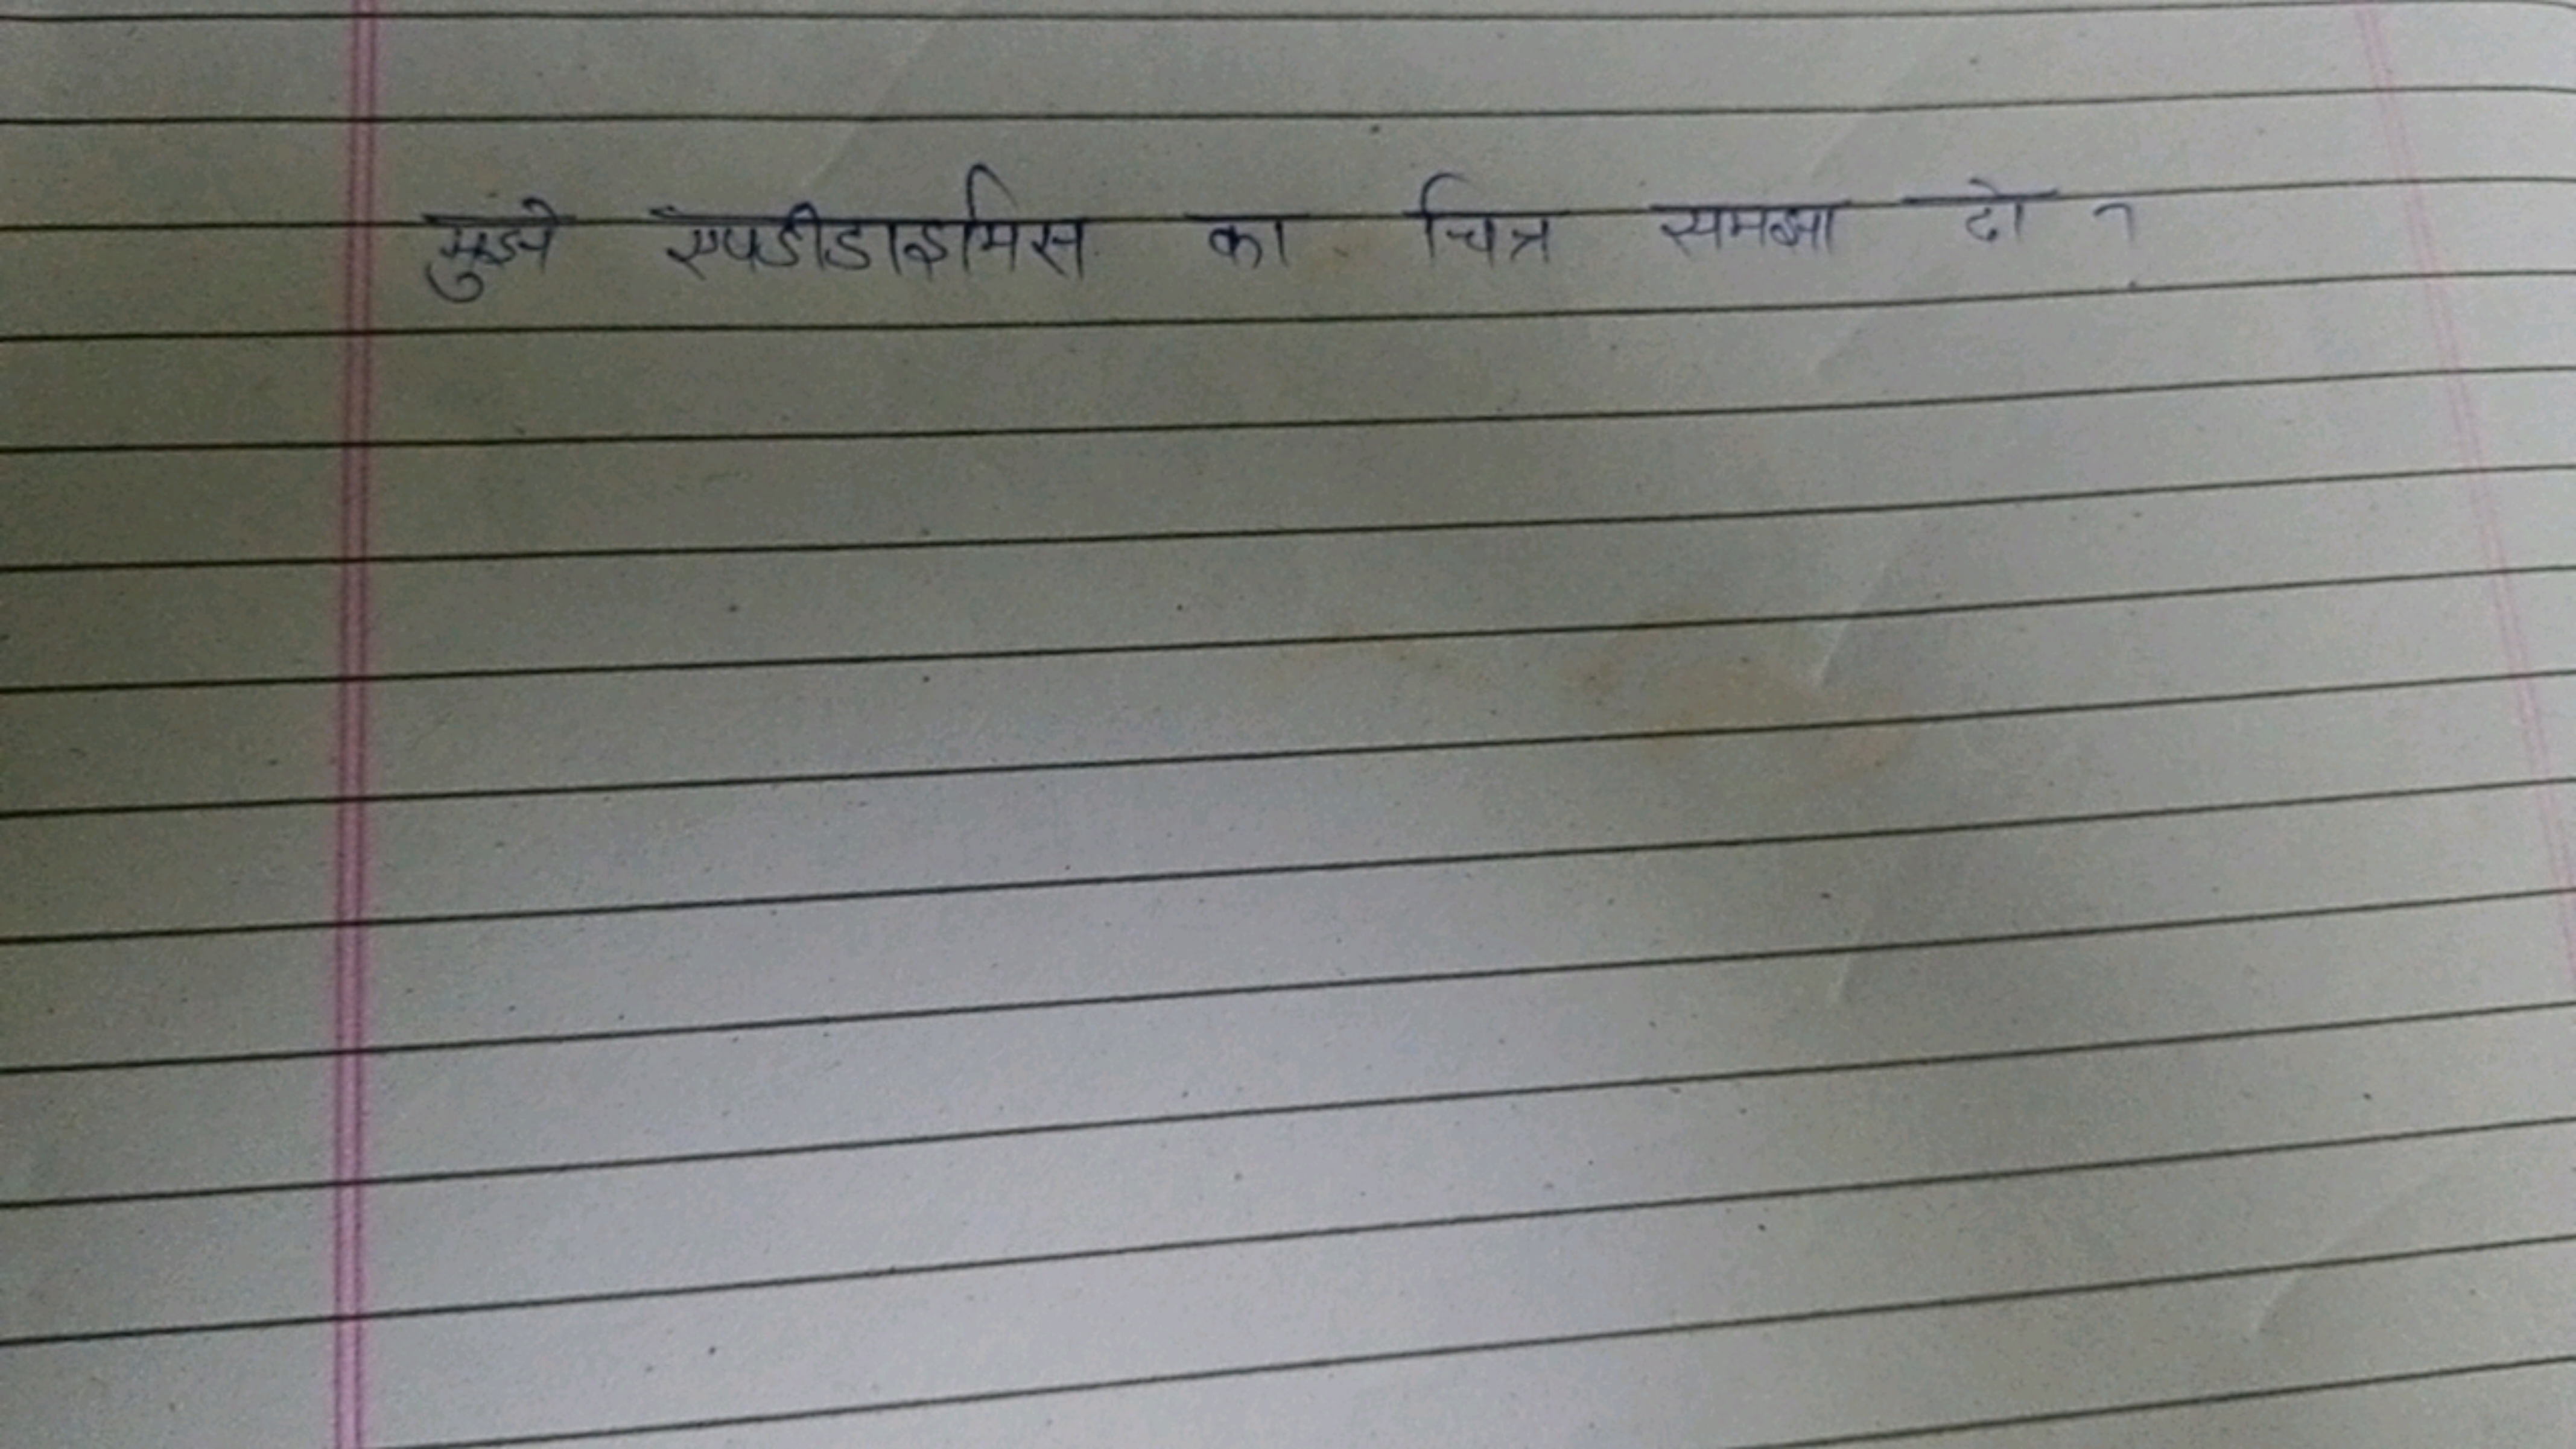 मुझे एपडीडाइमिस का चित्र समझा दो ?